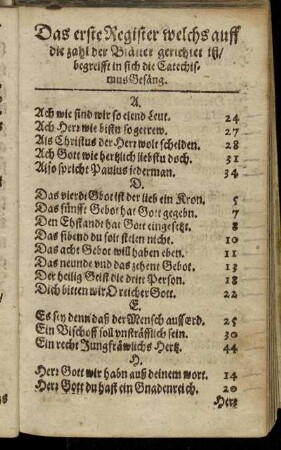 Das erste Register welchs auff
die zahl der Blätter gerichtet ist/
begreifft in sich die Catechis-
mus Gesäng.
A.
Ach wie sind wir so elend Leut. 24
Ach Herr wie bistu so getrew. 27
Als Christus der Herr wolt scheiden. 28
Ach Gott wie hertzlich liebstu doch. 31
Also spricht Paulus jederman. 34
D.
Das vierdt Gbot ist der lieb ein Kron. 5
Das fünfft Gebot hat Gott gegebn. 7
Den Ehstandt hat Gott eingesetzt. 8
Das sibend du solt stelen nicht. 10
Das acht Gebot will haben eben. 11
Das neunde vnd das zehent Gebot. 13
Der heilig Geist die dritt Person. 18
Dich bitten wir O reicher Gott. 22
E.
Es sey denn daß der Mensch auff erd. 25
Ein Bischoff soll vnsträfflich sein. 30
Ein recht Jungfräwlichs Hertz. 44
H.
Herr Gott wir habn auß deinem wort. 14
Herr Gott du hast ein Gnadenreich. 20
Herr